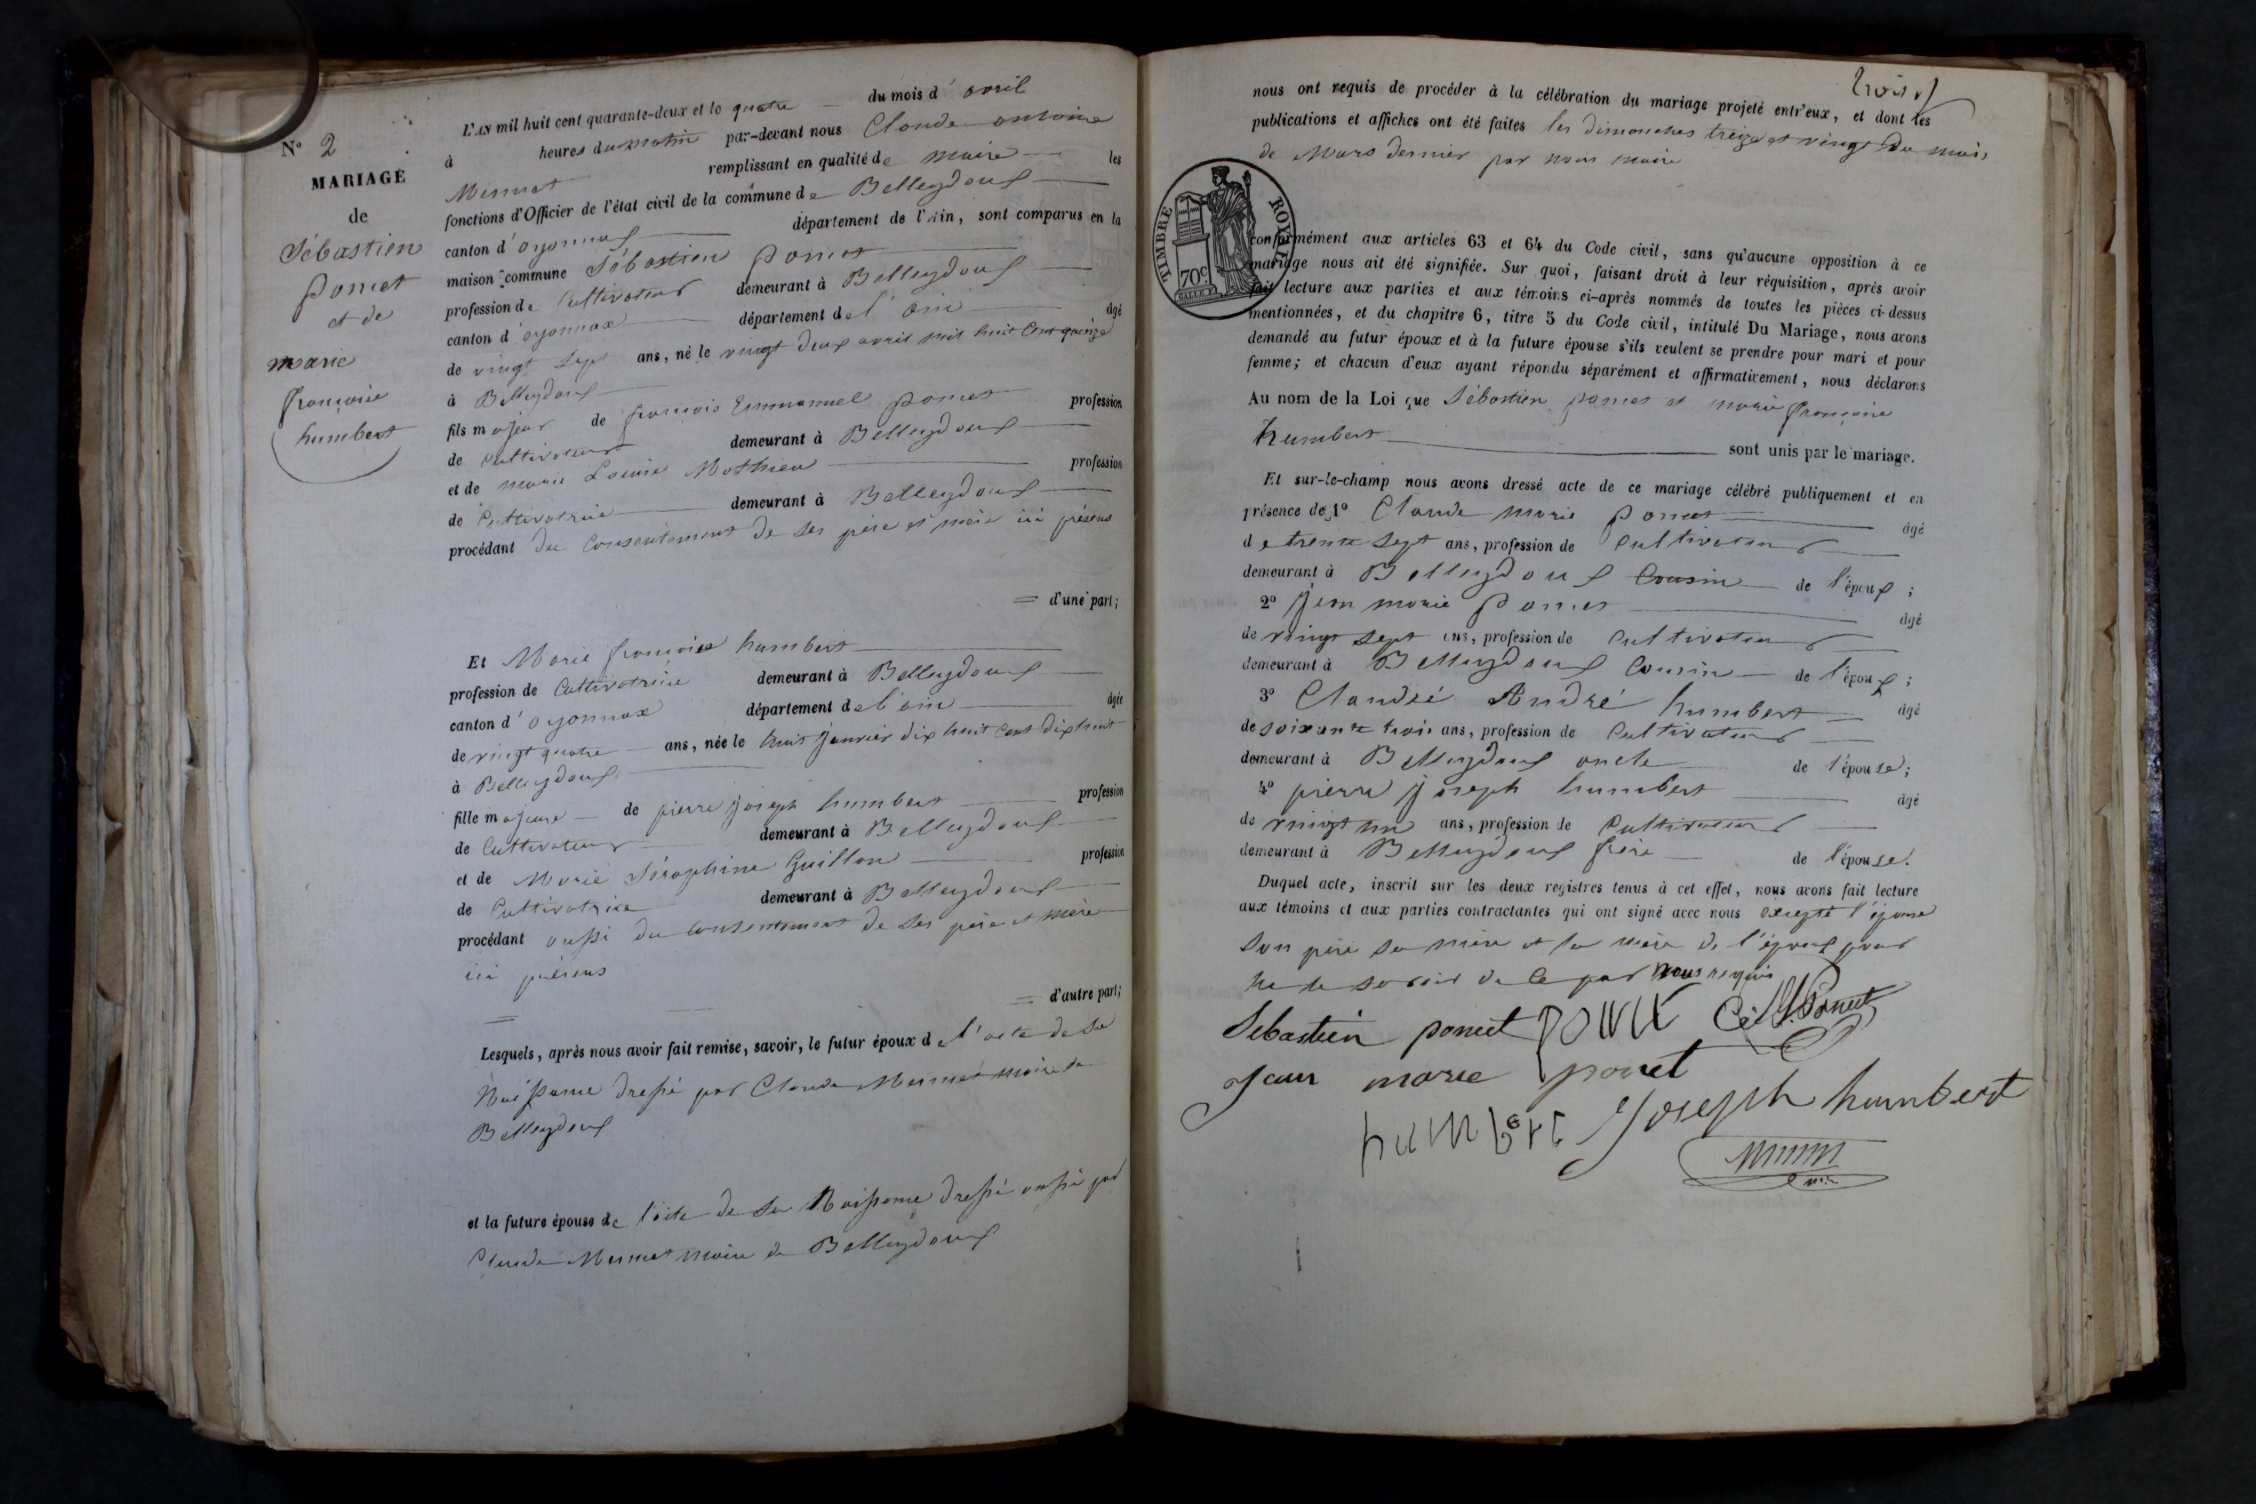 N° 2
MARIAGE
de
Sébastien
Ponet
et de
marie
françoise
humbert
L'AN mil huit cent quarante-deux et le quatre du mois d'avril
à heures du matin par-devant nous Claude antoine
Mermet remplissant en qualité de maire les
fonctions d'Officier de l'état civil de la commune de Belleydoux
canton d'oyonnax département de l'Ain, sont comparus en la
maison commune Sébastien Ponet
profession de Cultivateur demeurant à Belleydoux
canton d'oyonnax département de l'ain âgé
de vingt sept ans, né le vingt deux avril mil huit Cent quinze
à Belleydoux
fils majeur de françois Emmanuel ponet profession
de cultivateur demeurant à Belleydoux
et de marie Louise Mathieu profession
de Cultivatrice demeurant à Belleydoux
procédant du Consentement de ses père et mère ici présens
d'une part;
Et Marie françoise humbert
profession de Cultivatrice demeurant à Belleydoux
canton d'oyonnax département de l'ain âgée
de vingt quatre ans, née le huit janvier dix huit cent dix huit
à Belleydoux
fille majeure de pierre joseph humbert profession
de Cultivateur demeurant à Belleydoux
et de Marie Séraphine Guillon profession
de Cultivatrice demeurant à Belleydoux
procédant aussi du Consentement de ses père et mère
ici présens
d'autre part;
Lesquels, après nous avoir fait remise, savoir, le futur époux de l'acte de sa
Naissance dressé par Claude Mermet maire de
Belleydoux
et la future épouse de l'acte de sa Naissance dressé aussi par
Claude Mermet maire de Belleydoux
trois
nous ont requis de procéder à la célébration du mariage projeté entr'eux, et dont les
publications et affiches ont été faites les dimanches treize et vingt du mois
de Mars dernier par nous maire
TIMBRE ROYAL
70c
conformément aux articles 63 et 64 du Code civil, sans qu'aucune opposition à ce
mariage nous ait été signifiée. Sur quoi, faisant droit à leur réquisition, après avoir
fait lecture aux parties et aux témoins ci-après nommés de toutes les pièces ci-dessus
mentionnées, et du chapitre 6, titre 5 du Code civil, intitulé Du Mariage, nous avons
demandé au futur époux et à la future épouse s'ils veulent se prendre pour mari et pour
femme; et chacun d'eux ayant répondu séparément et affirmativement, nous déclarons
Au nom de la Loi que Sébastien ponet et marie françoise
humbert sont unis par le mariage.
Et sur-le-champ nous avons dressé acte de ce mariage célébré publiquement et en
présence de 1° Claude marie ponet âgé
de trente sept ans, profession de Cultivateur
demeurant à Belleydoux Cousin de l'époux;
2° jean marie ponet âgé
de vingt sept ans, profession de Cultivateur
demeurant à Belleydoux Cousin de l'époux;
3° Claude André humbert âgé
de soixante trois ans, profession de Cultivateur
demeurant à Belleydoux oncle de l'épouse;
4° pierre joseph humbert âgé
de vingt un ans, profession de Cultivateur
demeurant à Belleydoux frère de l'épouse.
Duquel acte, inscrit sur les deux registres tenus à cet effet, nous avons fait lecture
aux témoins et aux parties contractantes qui ont signé avec nous excepté l'épouse
son père sa mère et la mère de l'époux pour
ne le savoir de ce par nous requis
Sebastien ponet ponet C. M. Ponet
Jean marie ponet
humbert Joseph humbert